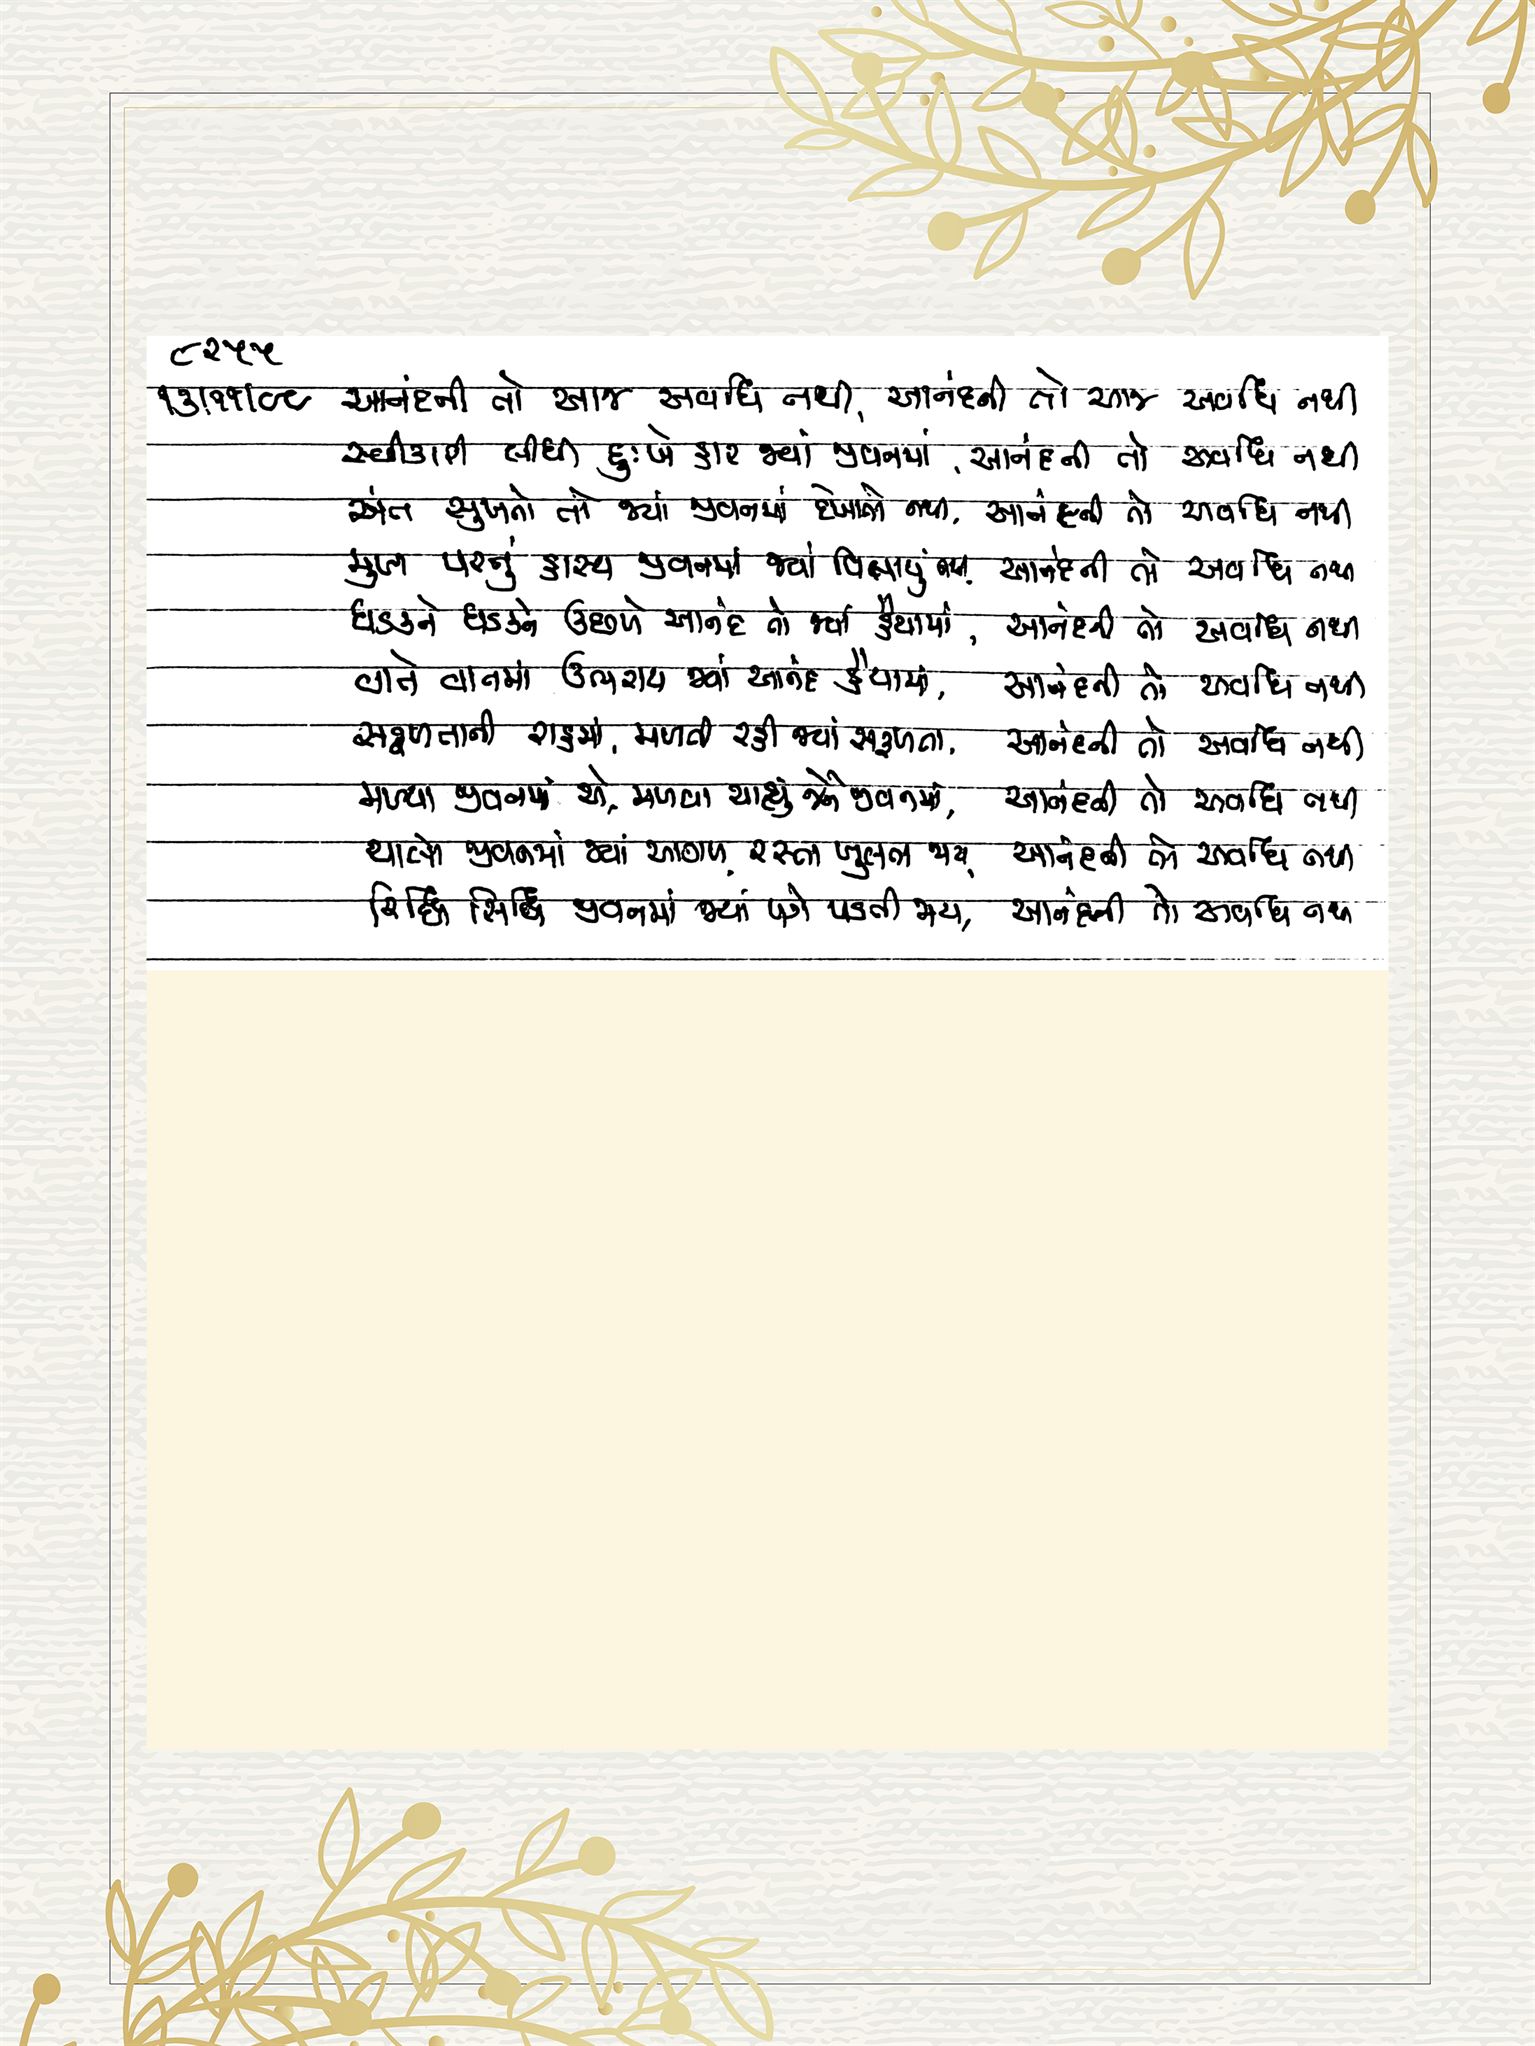 ૮૨૫૫
૧૩/૧૧/૯૯ આનંદની તો આજ અવધિ નથી, આનંદની તો આજ અવધિ નથી
સ્વીકારી લીધી દુઃખે હાર જ્યાં જીવનમાં, આનંદની તો અવધિ નથી
અંત સુખનો તો જ્યાં જીવનમાં દેખાતો નથી, આનંદની તો અવધિ નથી
મુખ પરનું હાસ્ય જીવનમાં જ્યાં વિલાયું નથી, આનંદની તો અવધિ નથી
ધડકને ધડકને ઉછળે આનંદ તો જ્યાં હૈયામાં, આનંદની તો અવધિ નથી
વાતે વાતમાં ઉભરાય જ્યાં આનંદ હૈયામાં, આનંદની તો અવધિ નથી
સફળતાની રાહમાં, મળતી રહી જ્યાં સફળતા, આનંદની તો અવધિ નથી
મળ્યા જીવનમાં એ, મળવા ચાહ્યું જેને જીવનમાં, આનંદની તો અવધિ નથી
ચાલ્યો જીવનમાં જ્યાં આગળ, રસ્તા ખુલતા જાય, આનંદની તો અવધિ નથી
રિદ્ધિ સિદ્ધિ જીવનમાં જ્યાં પગે પડતી જાય, આનંદની તો અવધિ નથી